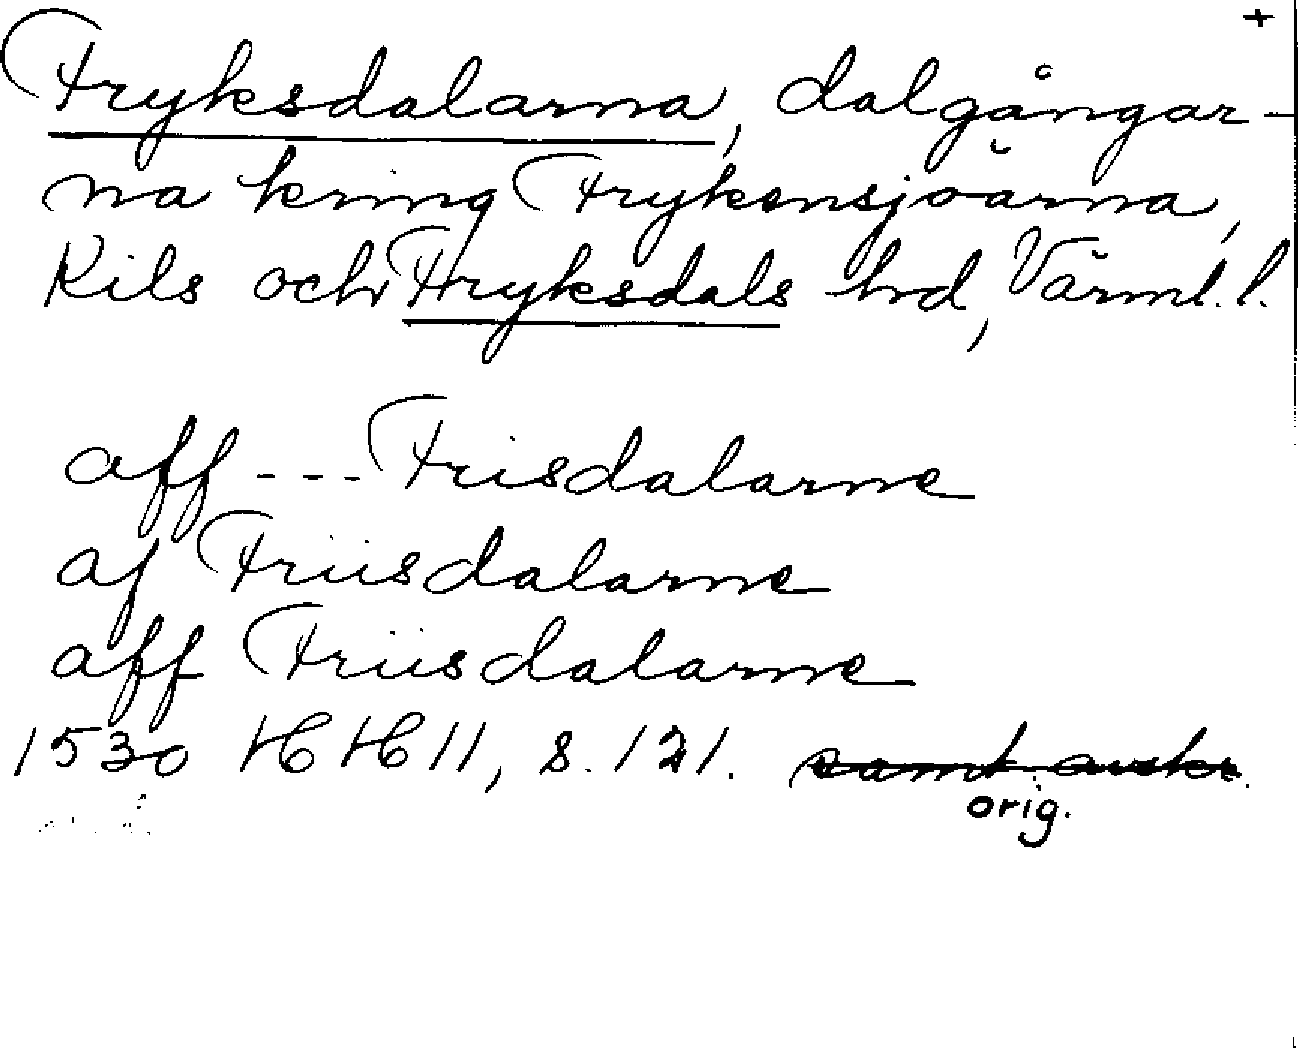 +
Fryksdalarna, dalgångar-
na kring Frykensjöarna,
Kils och Fryksdals hrd, Värml. l.
aff --- Frisdalarne
af Friisdalarne
aff Friisdalarne
1530 HH 11, s. 121. samt avskr.
orig.